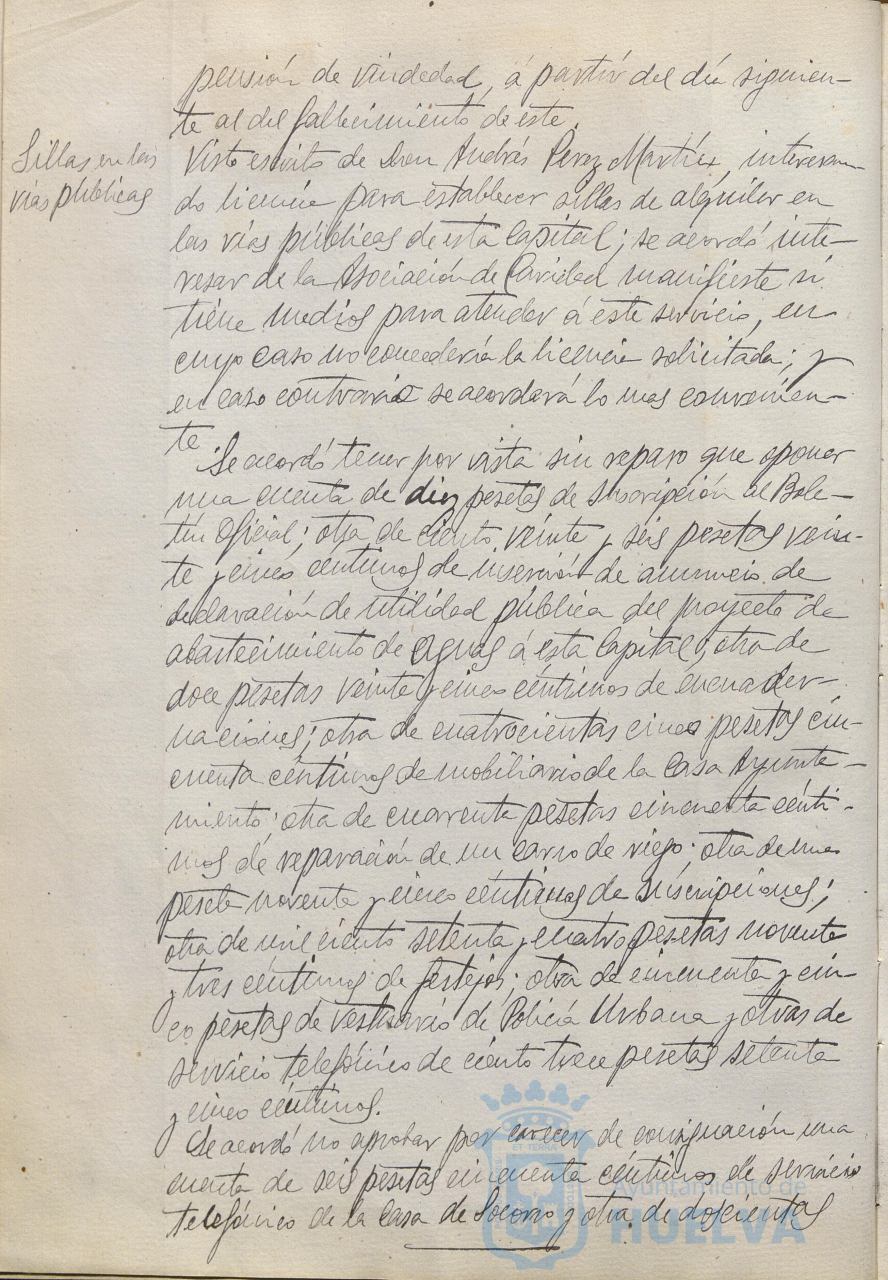 pensión de viudedad, á partir del día siguien-
te al del fallecimiento de este.
Sillas en las
vías públicas
Visto escrito de Don Andrés Perez Martín, interesan-
do licencia para establecer sillas de alquiler en
las vías públicas de esta Capital; se acordó inte-
resar de la Asociación de Caridad manifieste si
tiene medios para atender á este servicio, en
cuyo caso no concedería la licencia solicitada; y
en caso contrario se acordará lo mas convenien-
te
Se acordó tener por vista sin reparo que oponer
una cuenta de diez pesetas de suscripción al Bole-
tín Oficial; otra de ciento veinte y seis pesetas vein-
te y cinco centimos de inserción de anuncio de
declaración de utilidad pública del proyecto de
abastecimiento de aguas á esta Capital; otra de
doce pesetas veinte y cinco céntimos de encuader-
naciones; otra de cuatrocientas cinco pesetas cin-
cuenta céntimos de mobiliario de la Casa Ayunta-
miento; otra de cuarenta pesetas cincuenta cénti-
mos de reparación de un carro de riego; otra de una
peseta noventa y cinco céntimos de suscripciones;
otra de mil ciento setenta y cuatro pesetas noventa
y tres céntimos de festejos; otra de cincuenta y cin-
co pesetas de vestuario de Policía Urbana y otras de
servicio telefónico de ciento trece pesetas setenta
y cinco céntimos.
Se acordó no aprobar por carecer de consignación una
cuenta de seis pesetas cincuenta céntimos de servicio
telefónico de la Casa de Socorro y otra de doscientas
Ayuntamiento de
HUELVA